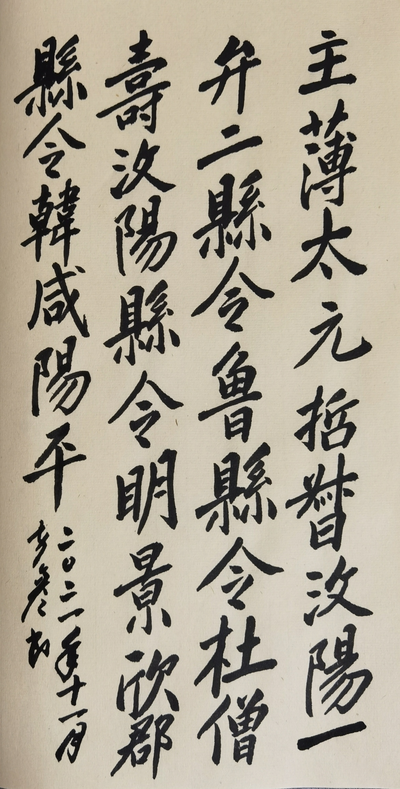 主薄太元哲督汝陽一
弁二縣令魯縣令杜僧
壽汝陽縣令明景欣郡
縣令韓咸陽平
二〇二一年十一月